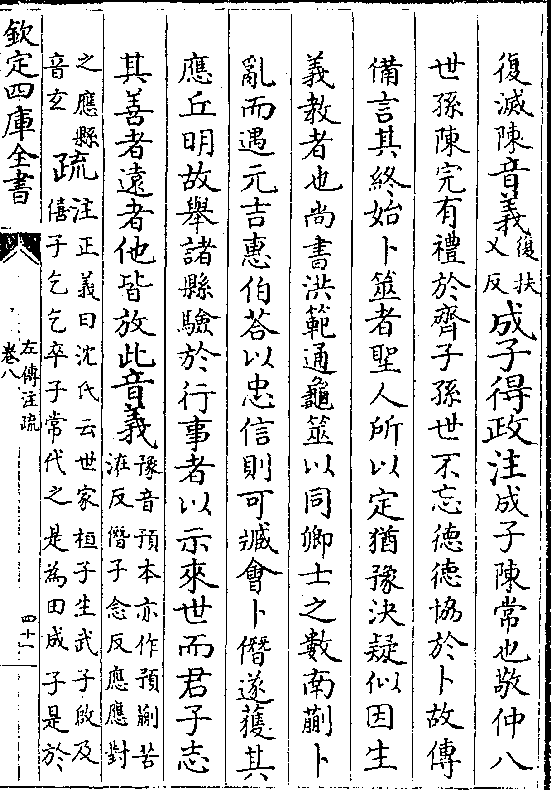 復滅陳音義復扶
又反成子得政注成子陳常也敬仲八
世孫陳完有禮於齊子孫世不忘德德協於卜故傳
備言其終始卜筮者聖人所以定猶豫決疑似因生
義教者也尚書洪範通龜筮以同卿士之數南蒯卜
亂而遇元吉惠伯荅以忠信則可臧會卜僭遂獲其
應丘明故舉諸縣驗於行事者以示來世而君子志
其善者遠者他皆放此音義豫音預本亦作預蒯苦
淮反僭子念反應應對
之應縣
音玄疏注正義曰沈氏云世家桓子生武子啟及
僖子乞乞卒子常代之是為田成子是於
欽定四庫全書
左傳注疏
卷八
四十一